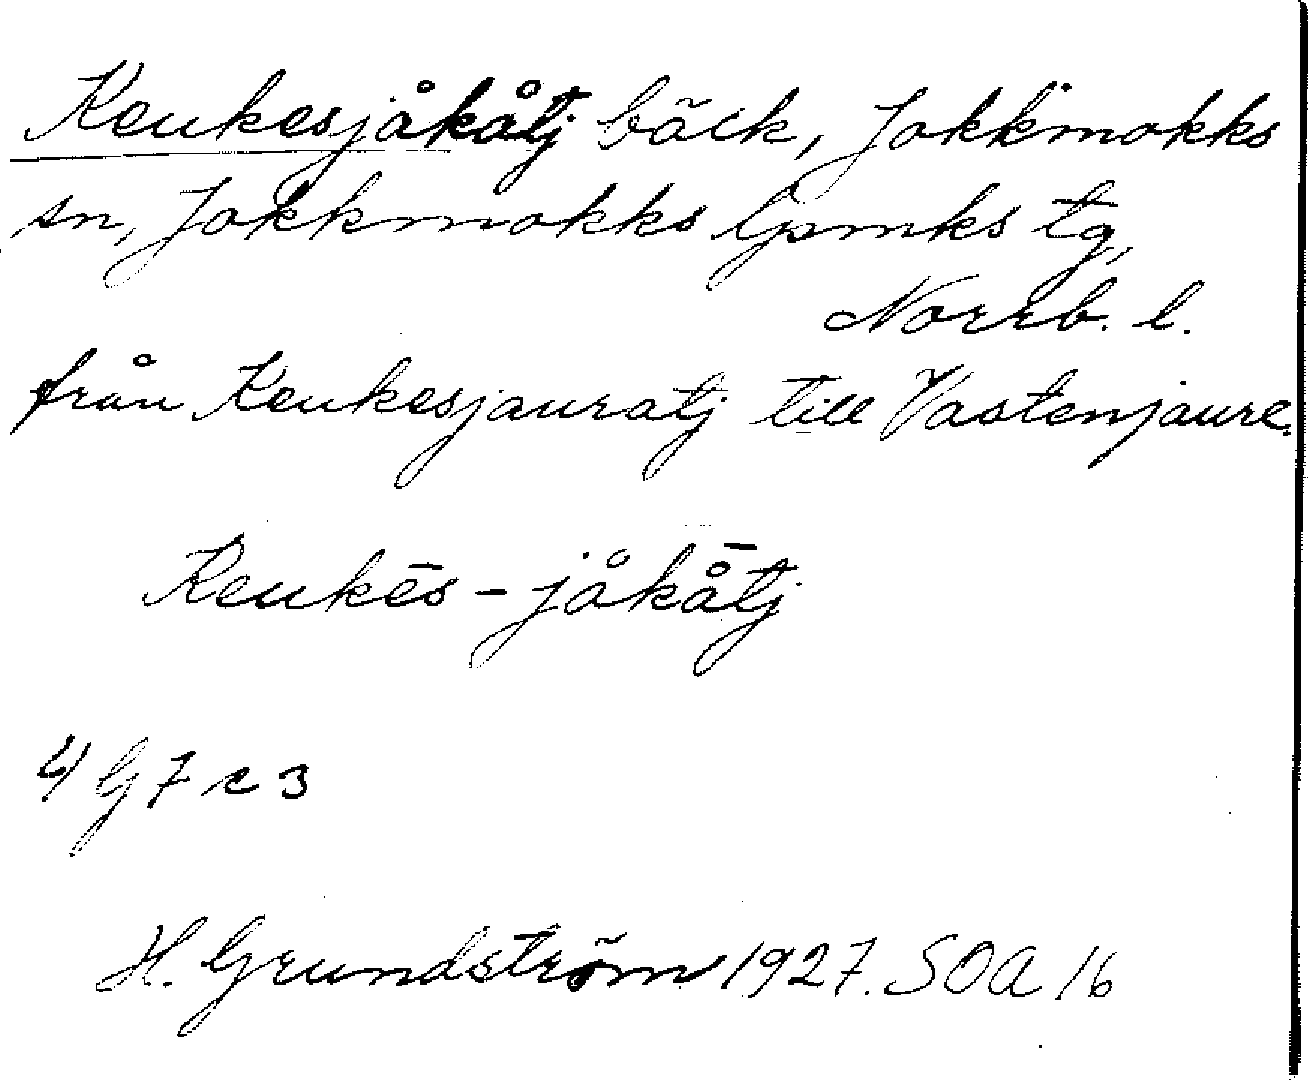 Keukesjåkåtj bäck, Jokkmokks
sn, Jokkmokks lpmks tg,
Norrb. l.
från Keukesjauratj till Vastenjaure.
Keukēs - jåkå̄tj
4 G 7 c 3
H. Grundström 1927. SOA 16